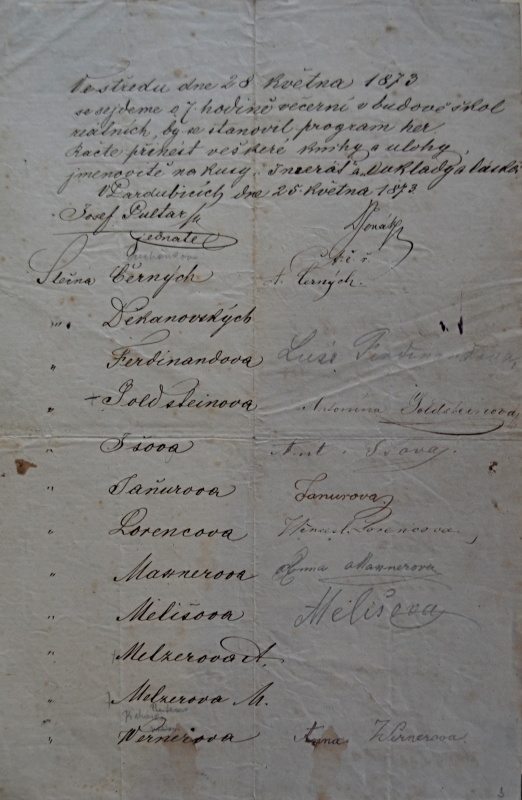 Ve středu dne 28 května 1873
se sejdeme o 7 hodině večerní v budově škol
reálních, by se stanovil program her
Račte přinést veškeré knihy a úlohy,
jmenovitě na kusy,
V Pardubicích dne 25 května 1873
Josef Pultar
jednatel
Slečna Černých A. Černých.
" Děkanovských
" Ferdinandova Ferdinandova
" + Goldsteinova Antonína Goldsteinova
" Išova Ant. Išova.
" Jaňurova Janurova
" Lorencova Lorencova
" Masnerova Anna Masnerova
" Melišova Melišova
" Melzerova A.
" Melzerova M.
" Wernerova Anna Wernerova.